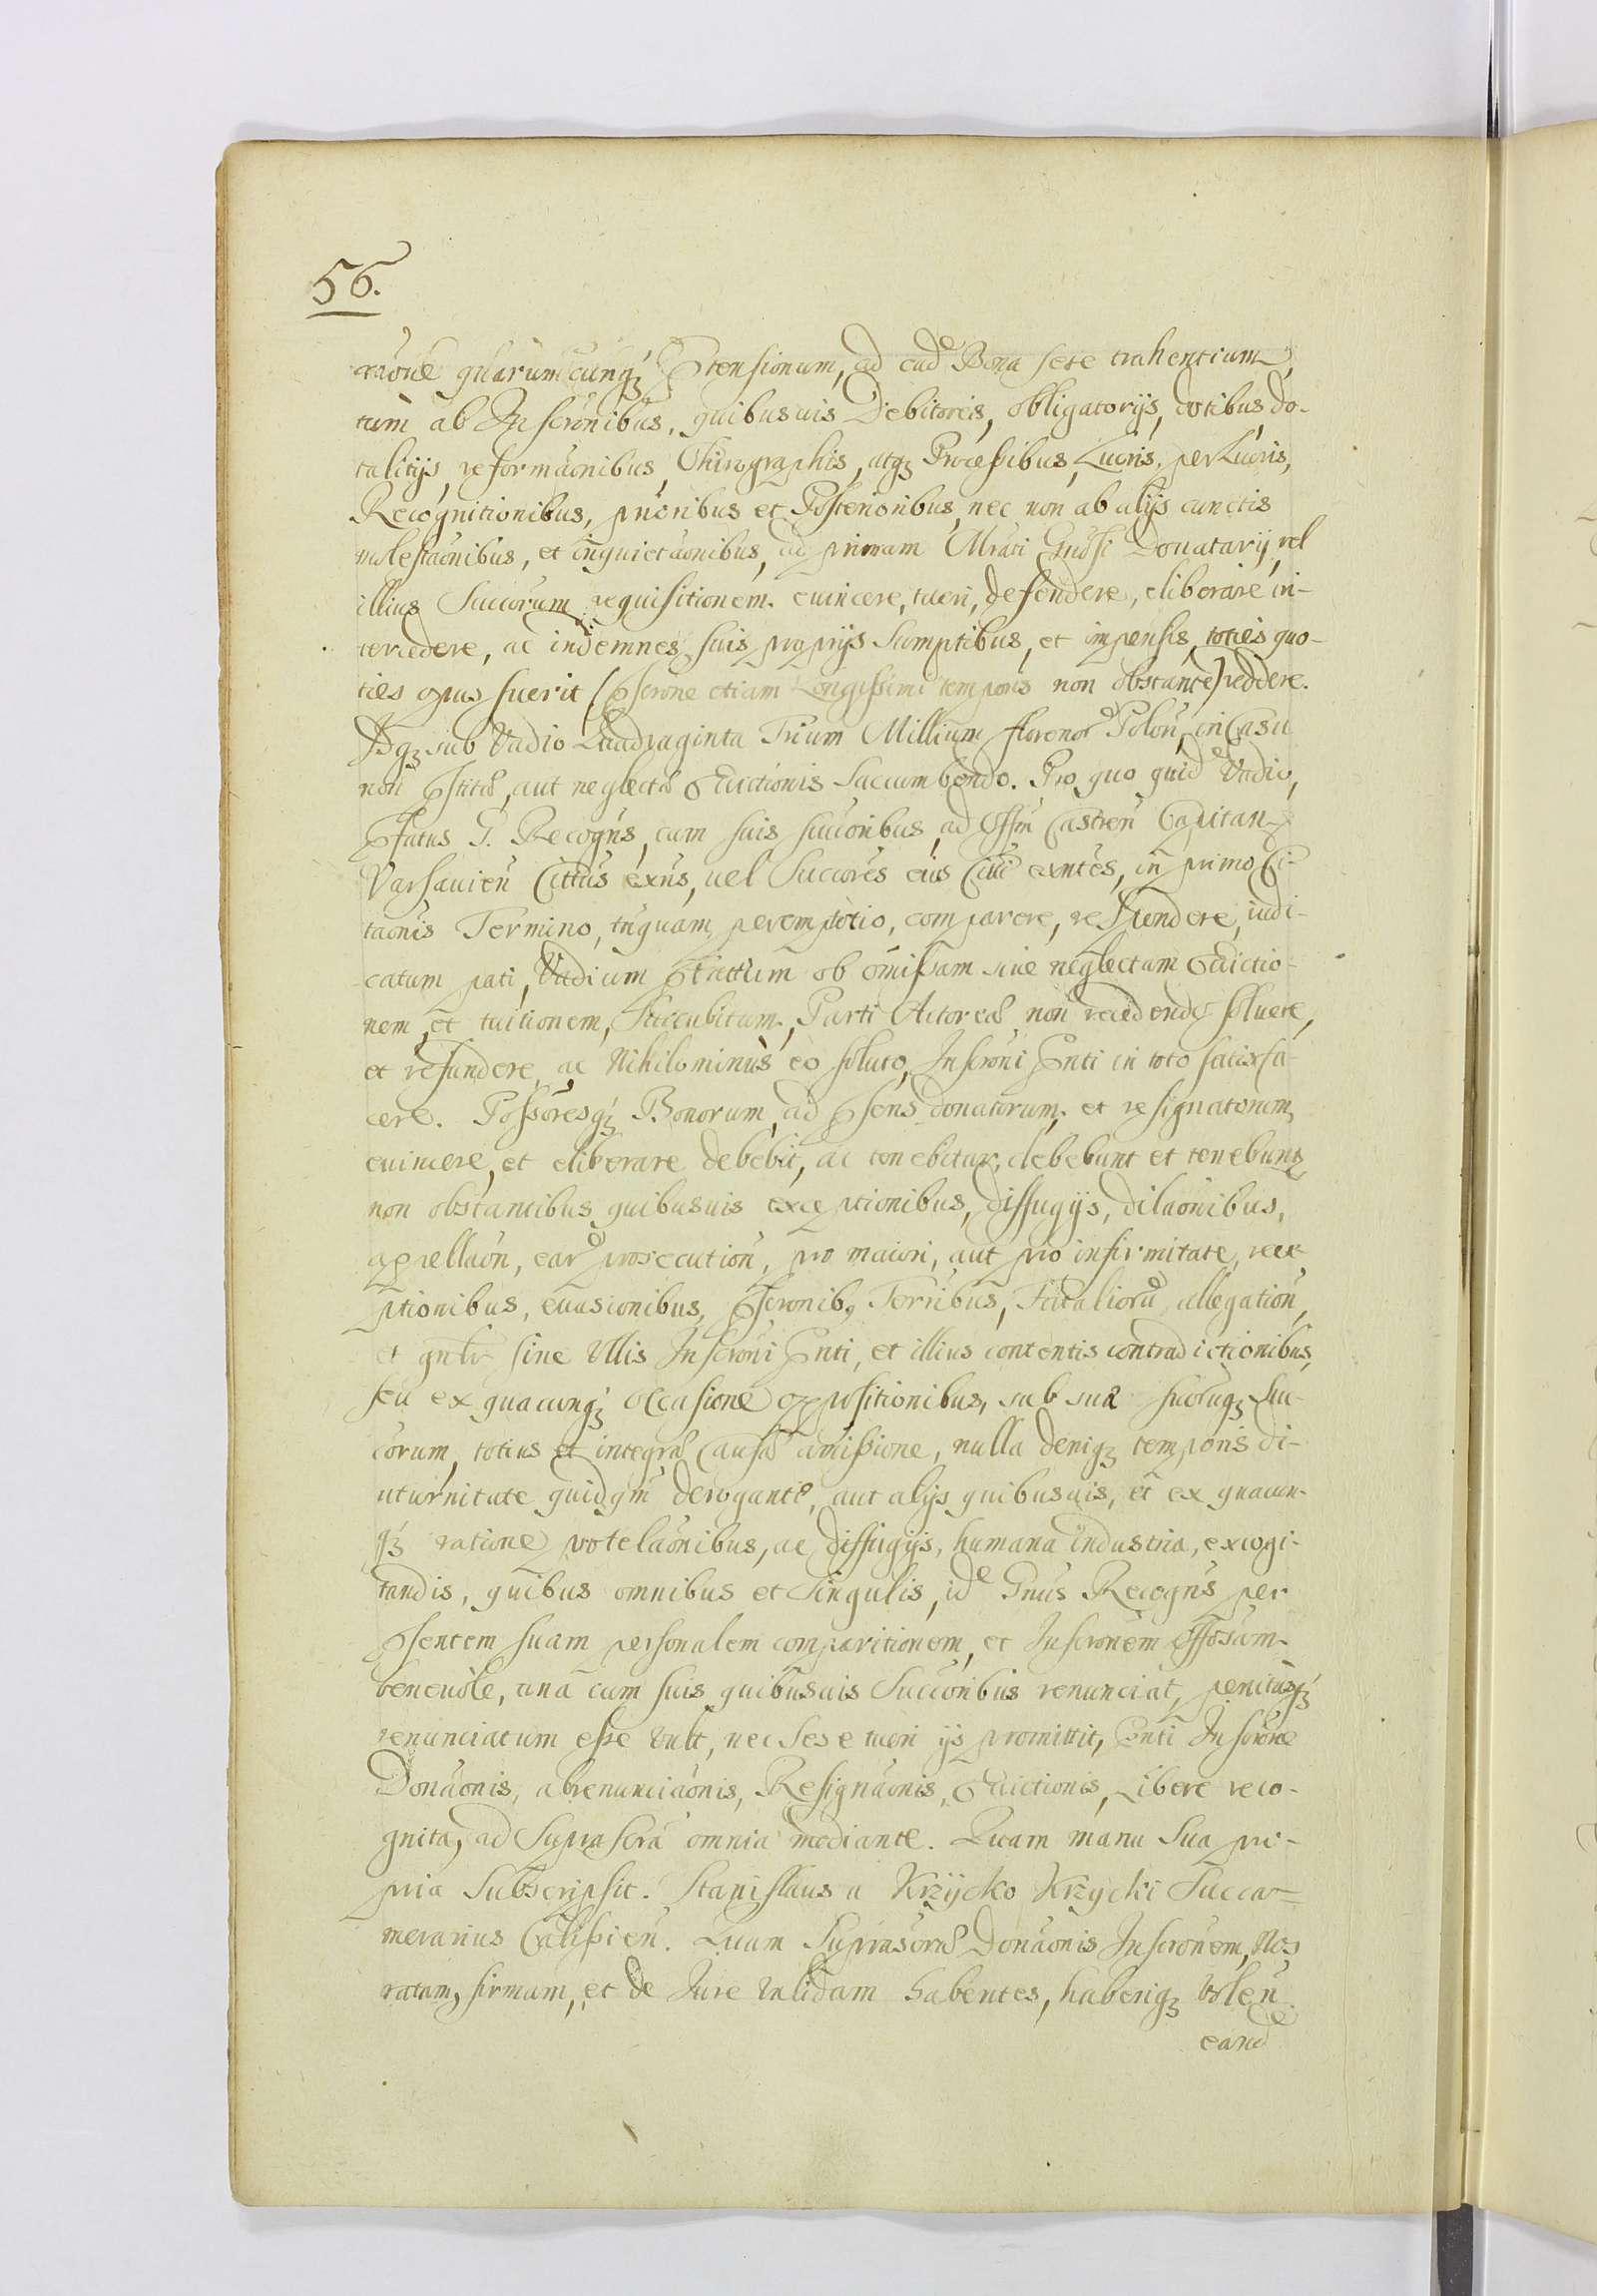 56.
raõne quarumcunq; Prætensionum, ad ead Bona sese trahentium,
tum ab Inscrõnibus, quibusuis Debitoriis, obligatorijs, dotibus do-
talitijs, reformaõnibus, Chirographis, atq; Processibus, Lucris, perLucris,
Recognitionibus, prioribus et Posterioribus, nec non ab alijs cunctis
molestaõnibus, et inquietaõnibus, ad primam Mfrati Gnõsi Donatarij, vel
illius Succorum requisitionem. euincere, tueri, defendere, eliberare in-
tercedere, ac indemnes suis proprijs Sumptibus, et impensis, toties quo-
ties opus fuerit (Præscrõne etiam Longissimi temporis non obstante) reddere.
Idq; sub Vadio Quadraginta Trium Millium florenor Polon, in Casu
non Præstitæ, aut neglectæ Euictionis Succumbendo. Pro quo quid Vadio,
Præfatus G. Recogns, cum suis succoribus, ad Offm Castren Capitan
Varsauien Cittus exns, uel Succores eius Citti exntes, in primo Ci-
taõnis Termino, tnquam peremptorio, comparere, respondere, iudi-
catum pati, Vadium Præfattum ob omissam siue neglectam Euictio-
nem, et tuitionem, Succubitum, Parti Actoreæ non recedendo soluere,
et refundere, ac Nihilominus eo soluto, Inscrõni Præsnti in toto satisfa-
cere. Possoresq; Bonorum, ad Præsens donatorum, et resignatorum,
euincere, et eliberare debebit, ac tenebitur, debebunt et tenebunt
non obstantibus quibusuis exceptionibus, diffugijs, dilaõnibus,
appellaõn, ear prosecution, pro maiori, aut pro infirmitate, rece-
ptionibus, euasionibus, Præscronib, Terribus, Fataliorū allegation,
et gnlr sine Vllis Inscrõni Præsnti, et illius contentis contradictionibus,
seu ex quacunq; occasione oppositionibus, sub sua suorūq; Suc-
corum, totius et integræ Causæ amissione, nulla deniq; temporis di-
uturnitate quidqm derogante, aut alijs quibusuis, et ex quacun-
q; ratione protelaõnibus, ac diffugijs, humana industria, excogi-
tandis, quibus omnibus et Singulis, id Gnus Recogns per
Præsentem suam personalem comparitionem, et Inscronem Offosam
beneuole, una cum suis quibusuis Succoribus renunciat, penitusq;
renunciatum esse vult, nec Sese tueri ijs promittit, Præsnti Inscrõne
Donaõnis, abrenunciaõnis, Resignaõnis, Euictionis, Libere reco-
gnita, ad Suprascra omnia mediante. Quam manu Sua pro-
pria Subscripsit. Stanislaus a Krzÿcko Krzycki Succa-
merarius Calissien. Quam Suprascræ Donaõnis Inscronem, Nos
ratam, firmam, et de Iure Validam habentes, haberiq; Volen
eand